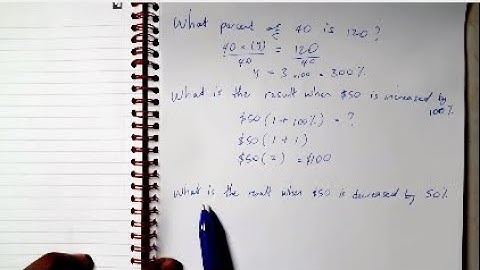 What percent of 40 is 120 ?
40 × (y) = 120
40 40
y = 3 ×100 = 300%
What is the result when $50 is increased by
100%
$50 (1 + 100%) = ?
$50 (1 + 1)
$50 (2) = $100
What is the result when $50 is decreased by 50%